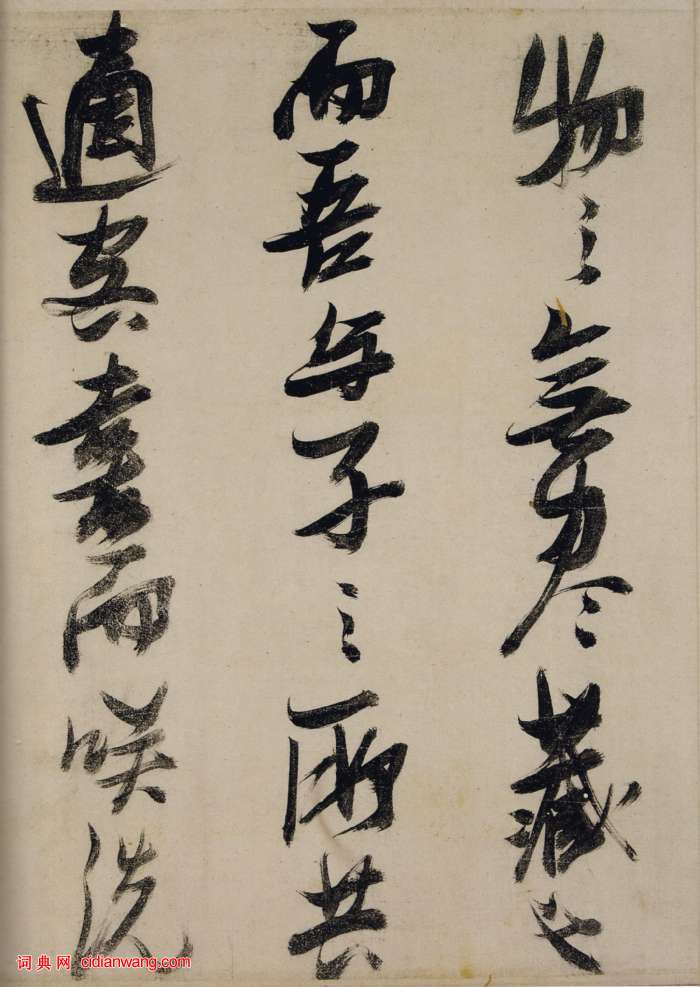 物之無盡藏也
而吾与子之所共
適客喜而咲洗
词典网 cidianwang.com